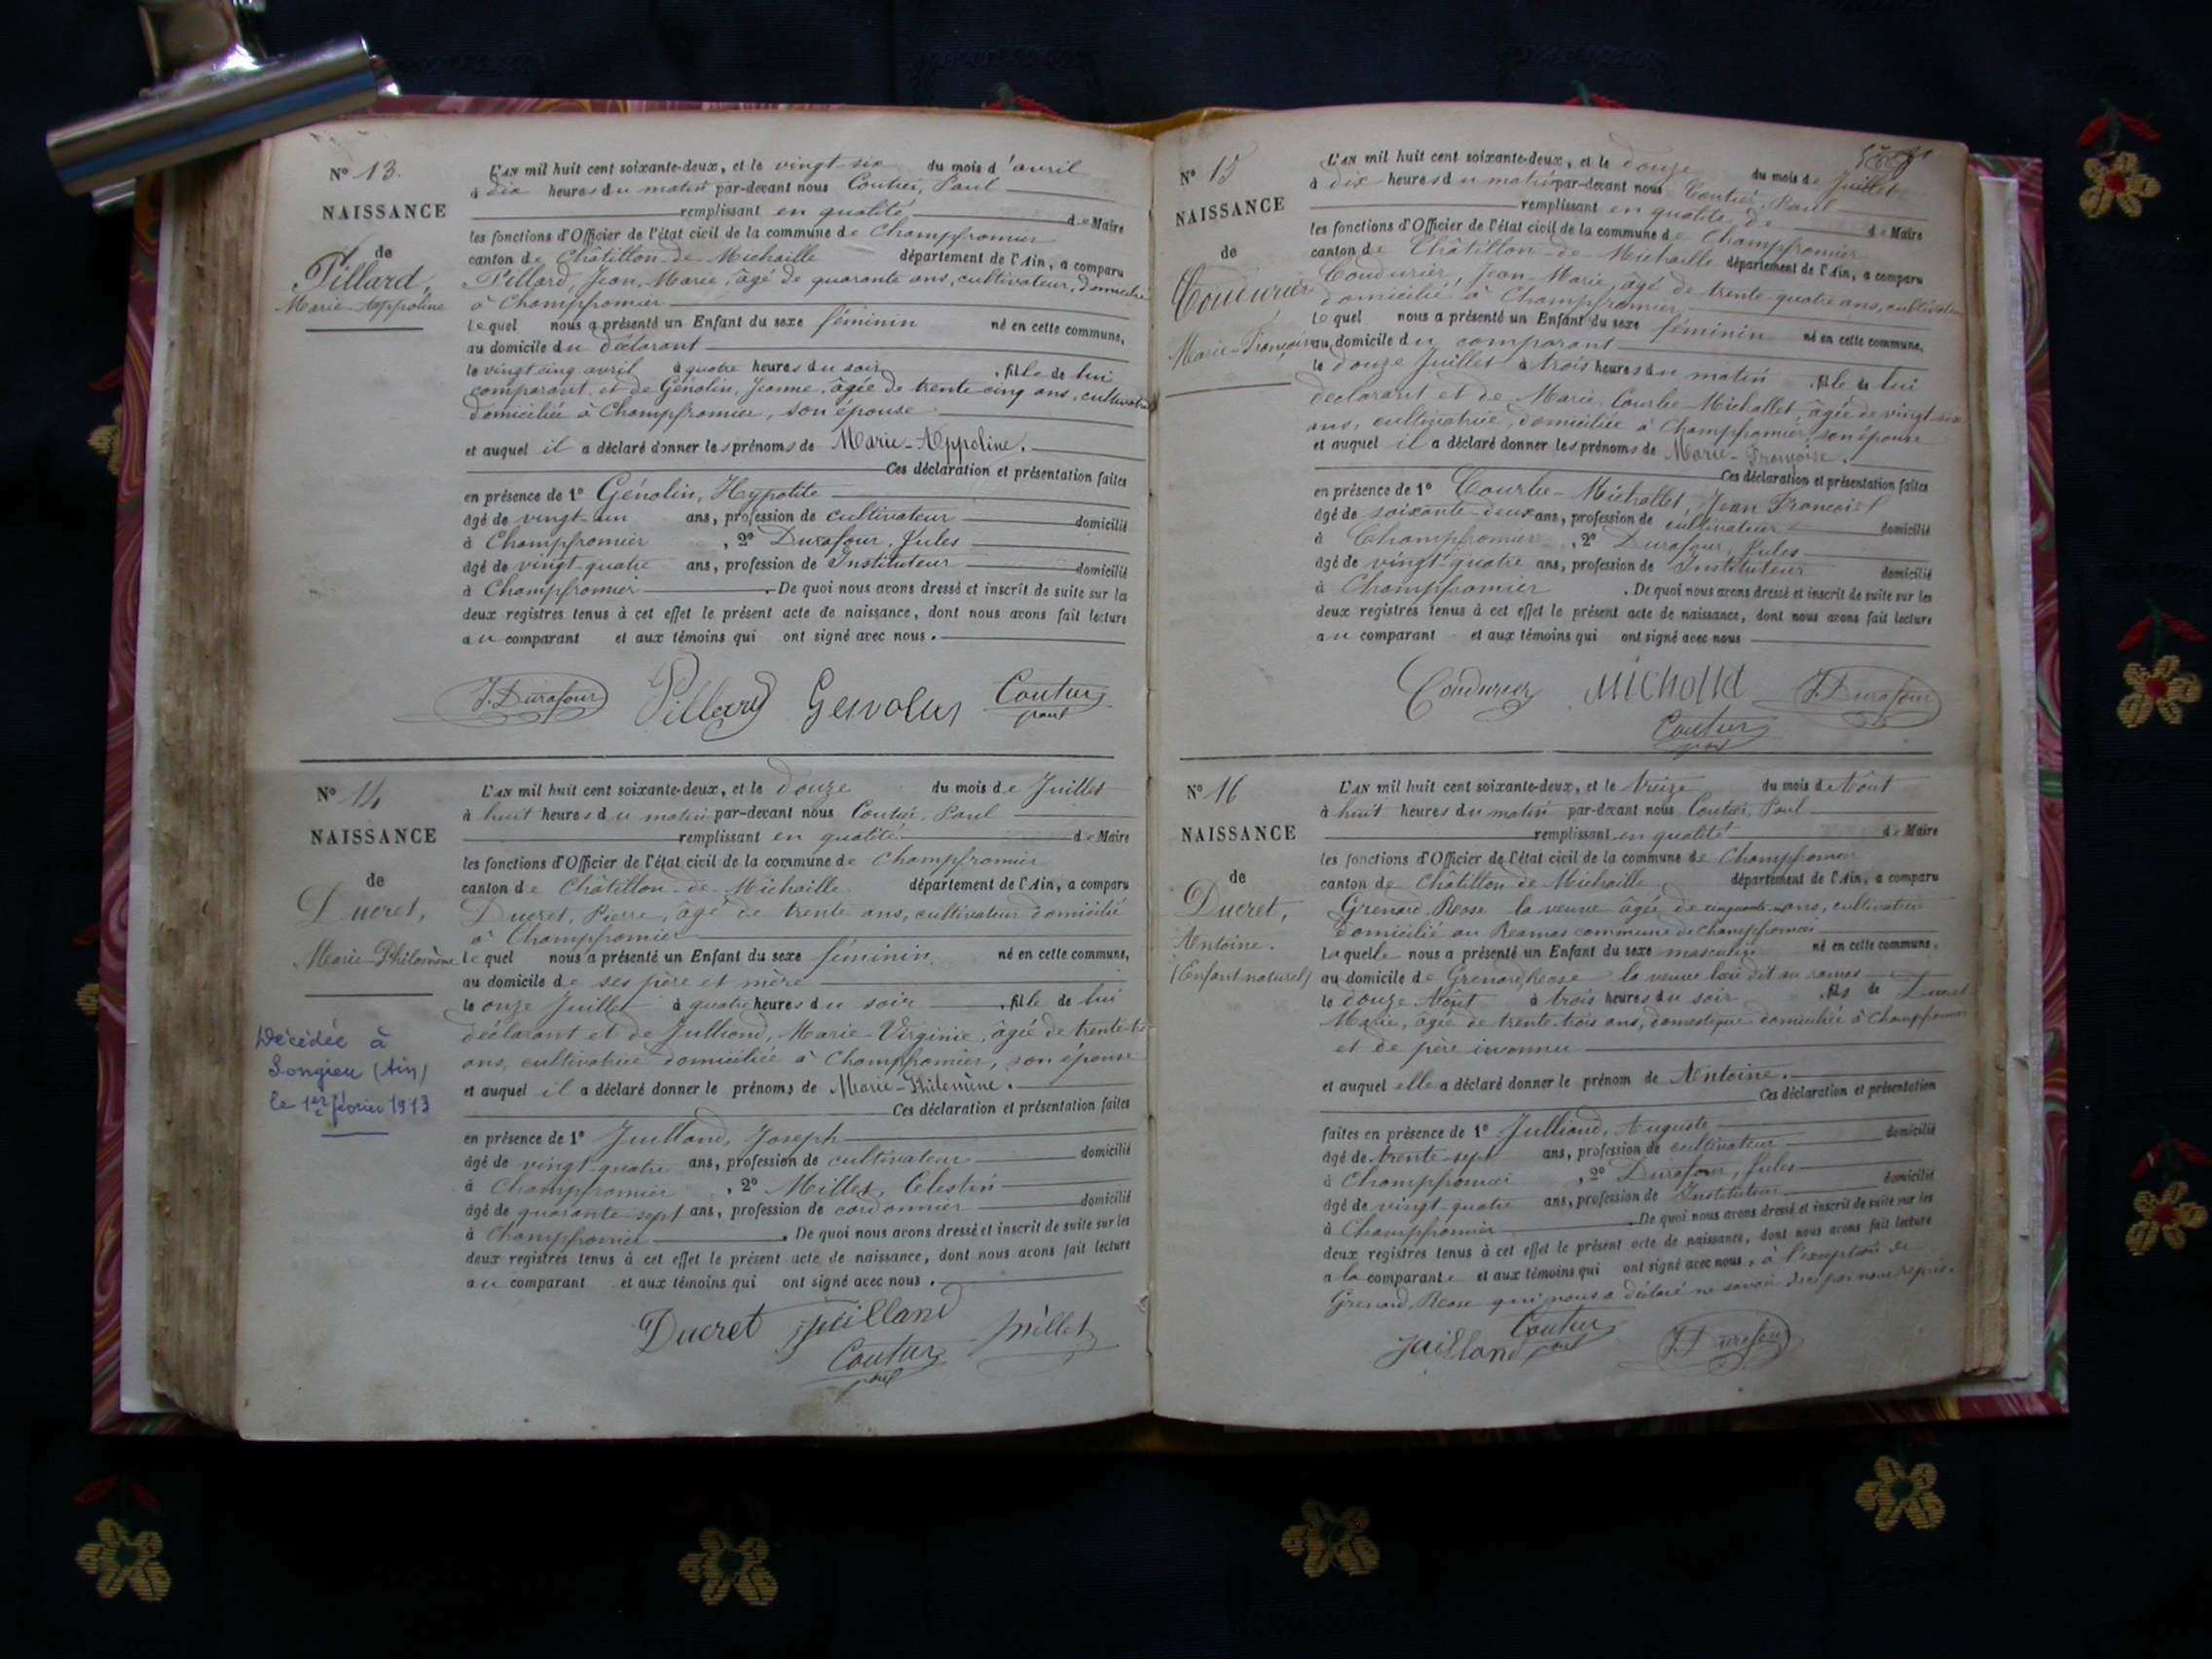 Nº 13.
NAISSANCE
de
Pillard,
Marie-Appoline
L'AN mil huit cent soixante-deux, et le vingt-six du mois d'avril
à dix heures du matin par-devant nous Coutier, Paul
remplissant en qualité de Maire
les fonctions d'Officier de l'état civil de la commune de Champfromier
canton de Châtillon-de-Michaille département de l'Ain, a comparu
Pillard, Jean-Marie, âgé de quarante ans, cultivateur, domicilié
à Champfromier
lequel nous a présenté un Enfant du sexe féminin né en cette commune,
au domicile du déclarant
le vingt cinq avril à quatre heures du soir, fille de lui
comparant et de Génolin, Jeanne, âgée de trente cinq ans, cultivatrice
domiciliée à Champfromier, son épouse
et auquel il a déclaré donner les prénoms de Marie-Appoline.
Ces déclaration et présentation faites
en présence de 1º Génolin, Hypolite
âgé de vingt-un ans, profession de cultivateur domicilié
à Champfromier, 2º Durafour, Jules
âgé de vingt-quatre ans, profession de Instituteur domicilié
à Champfromier. De quoi nous avons dressé et inscrit de suite sur les
deux registres tenus à cet effet le présent acte de naissance, dont nous avons fait lecture
au comparant et aux témoins qui ont signé avec nous.
J. Durafour Pillard Coutier
paul
Nº 14
NAISSANCE
de
Ducret,
Marie-Philomène
Décédée à
Songieu (Ain)
le 1er février 1913
L'AN mil huit cent soixante-deux, et le douze du mois de Juillet
à huit heures du matin par-devant nous Coutier, Paul
remplissant en qualité de Maire
les fonctions d'Officier de l'état civil de la commune de Champfromier
canton de Châtillon-de-Michaille département de l'Ain, a comparu
Ducret, Pierre, âgé de trente ans, cultivateur domicilié
à Champfromier
lequel nous a présenté un Enfant du sexe féminin né en cette commune,
au domicile de ses père et mère
le onze Juillet à quatre heures du soir, fille de lui
déclarant et de Julliand, Marie-Virginie, âgée de
ans, cultivatrice domiciliée à Champfromier, son épouse
et auquel il a déclaré donner le prénoms de Marie-Philomène.
Ces déclaration et présentation faites
en présence de 1º Julliand, Joseph
âgé de vingt-quatre ans, profession de cultivateur domicilié
à Champfromier, 2º Millet, Célestin
âgé de quarante-sept ans, profession de cordonnier domicilié
à Champfromier. De quoi nous avons dressé et inscrit de suite sur les
deux registres tenus à cet effet le présent acte de naissance, dont nous avons fait lecture
au comparant et aux témoins qui ont signé avec nous.
Ducret Juilland Millet
Coutier
paul
Nº 15
NAISSANCE
de
Coudurier
Marie-Françoise
L'AN mil huit cent soixante-deux, et le douze du mois de Juillet
à dix heures du matin par-devant nous Coutier, Paul
remplissant en qualité de de Maire
les fonctions d'Officier de l'état civil de la commune de Champfromier
canton de Châtillon-de-Michaille département de l'Ain, a comparu
Coudurier, Jean-Marie, âgé de trente-quatre ans, cultivateur
domicilié à Champfromier
lequel nous a présenté un Enfant du sexe féminin né en cette commune,
au domicile du comparant
le douze Juillet à trois heures du matin, fille de lui
déclarant et de Marie Courbe-Michollet, âgée de vingt-six
ans, cultivatrice, domiciliée à Champfromier, son épouse
et auquel il a déclaré donner les prénoms de Marie-Françoise.
Ces déclaration et présentation faites
en présence de 1º Courbe-Michollet, Jean François
âgé de soixante-deux ans, profession de cultivateur domicilié
à Champfromier, 2º Durafour, Jules
âgé de vingt-quatre ans, profession de Instituteur domicilié
à Champfromier. De quoi nous avons dressé et inscrit de suite sur les
deux registres tenus à cet effet le présent acte de naissance, dont nous avons fait lecture
au comparant et aux témoins qui ont signé avec nous
Coudurier J. Durafour
Coutier
paul
Nº 16
NAISSANCE
de
Ducret,
Antoine.
(Enfant naturel)
L'AN mil huit cent soixante-deux, et le treize du mois de Août
à huit heures du matin par-devant nous Coutier, Paul
remplissant en qualité de Maire
les fonctions d'Officier de l'état civil de la commune de Champfromier
canton de Châtillon de Michaille département de l'Ain, a comparu
Grenard Rose la veuve âgée de ans, cultivatrice
domicilié au commune de Champfromier
Laquelle nous a présenté un Enfant du sexe masculin né en cette commune,
au domicile de Grenard Rose la veuve
le douze Août à trois heures du soir, fils de Ducret
Marie, âgée de trente-trois ans, domestique domiciliée à Champfromier
et de père inconnu
et auquel elle a déclaré donner le prénom de Antoine.
Ces déclaration et présentation
faites en présence de 1º Julliand, Auguste domicilié
âgé de trente-sept ans, profession de cultivateur
à Champfromier, 2º Durafour, Jules
âgé de vingt-quatre ans, profession de Instituteur domicilié
à Champfromier. De quoi nous avons dressé et inscrit de suite sur les
deux registres tenus à cet effet le présent acte de naissance, dont nous avons fait lecture
a la comparante et aux témoins qui ont signé avec nous, à l'exception de
Grenard, Rose qui nous a déclaré ne savoir
Juilland Coutier paul J. Durafour